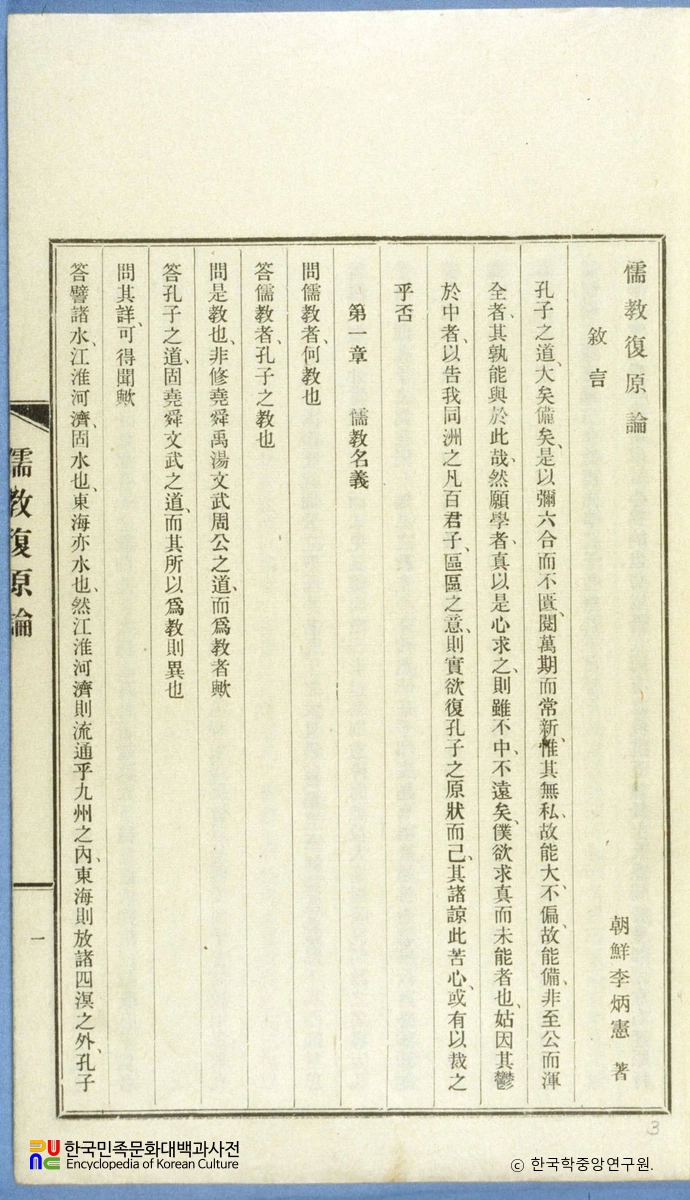 儒教復原論
朝鮮李炳憲 著
敘言
孔子之道、大矣備矣、是以彌六合而不匱、閱萬期而常新、惟其無私、故能大、不偏、故能備、非至公而渾
全者、其孰能與於此哉、然願學者、真以是心求之、則雖不中、不遠矣、僕欲求真而未能者也、姑因其鬱
於中者、以告我同洲之凡百君子、區區之意、則實欲復孔子之原狀而已、其諸諒此苦心、或有以裁之
乎否
第一章 儒教名義
問儒教者、何教也
答儒教者、孔子之教也
問是教也、非修堯舜禹湯文武周公之道、而爲教者歟
答孔子之道、固堯舜文武之道、而其所以爲教則異也
問其詳、可得聞歟
答譬諸水、江淮河濟、固水也、東海亦水也、然江淮河濟則流通乎九州之內、東海則放諸四溟之外、孔子
儒教復原論
一
3
한국민족문화대백과사전
Encyclopedia of Korean Culture
ⓒ 한국학중앙연구원.